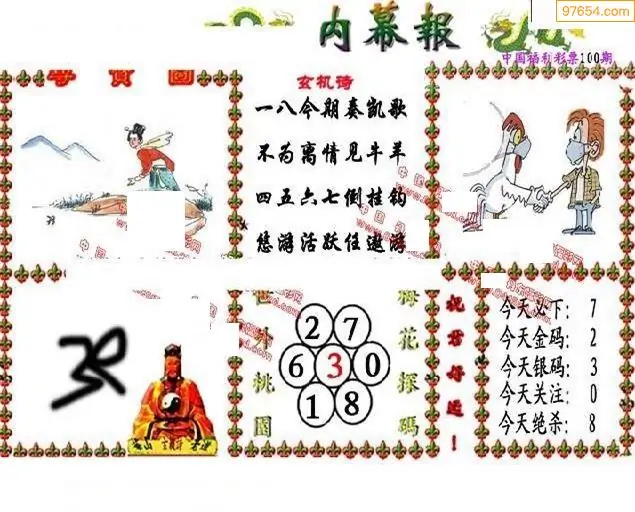 97654.com
内幕報
中国福利彩票100期
寻宝图
玄机诗
一八今期奏凯歌
不为离情见牛羊
四五六七倒挂钩
悠游活跃任遨游
世外桃園
2 7
6 3 0
1 8
梅花探碼
祝君好运！
今天必下： 7
今天金码： 2
今天银码： 3
今天关注： 0
今天绝杀： 8